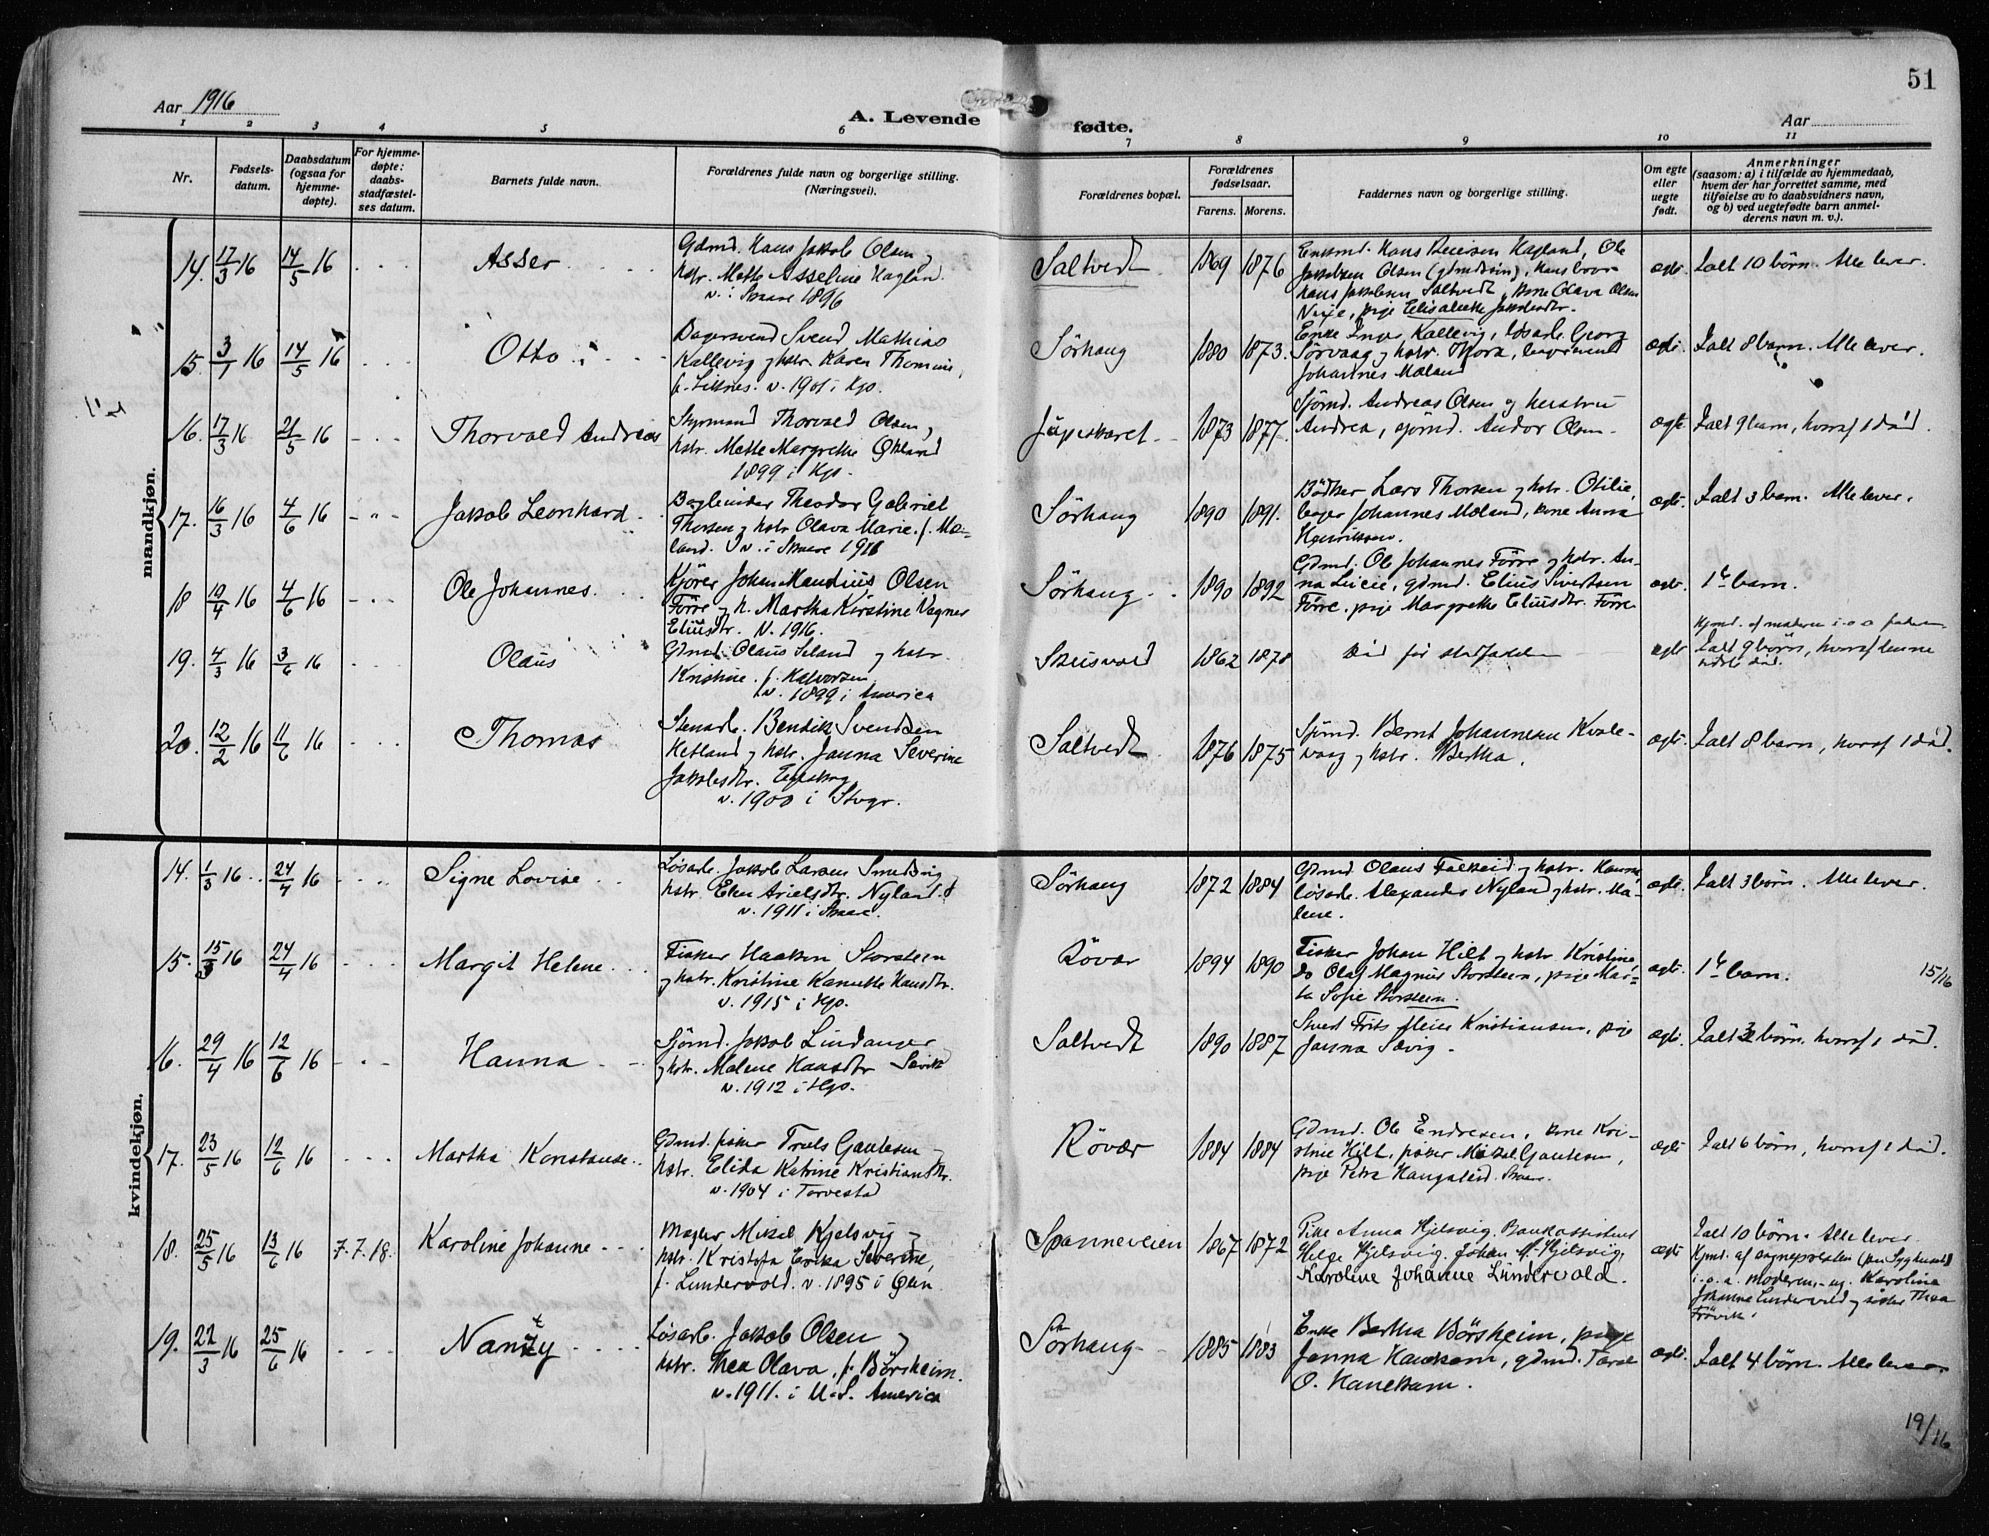 51
Aar 1916
A. Levende fødte.
Aar
1 2 3 4 5 6 7 8 9 10 11
Nr.
Fødsels-
datum.
Daabsdatum
(ogsaa for
hjemme-
døpte).
For hjemme-
døpte:
daabs-
stadfæstel-
ses datum.
Barnets fulde navn.
Forældrenes fulde navn og borgerlige stilling.
(Næringsvei).
Forældrenes bopæl.
Forældrenes
fødselsaar.
Farens. Morens.
Faddernes navn og borgerlige stilling.
Om egte
eller
uegte
født.
Anmerkninger
(saasom: a) i tilfælde av hjemmedaab,
hvem der har forrettet samme, med
tilføielse av to daabsvidners navn,
og b) ved uegtefødte barn anmel-
derens navn m. v.).
mandkjøn.
14. 17/3 16 14/5 16 Asser
Gdmd. Hans Jakob Olsen og
hstr. Mette Asseline Hagland
v. i Skaare 1896
Saltvedt 1869 1876
Enkmd. Hans Hagland, Ole
Jakobsen Olsen (gdmdssøn),
Hans Jakobsen Saltvedt, kone Olava Olsen
pige Elisabeth Jakobsdtr.
egte Ialt 10 børn. Alle lever.
15. 3/1 16 14/5 16 Otto
Bagersvend Svend Mathias
Kallevig og hstr. Karen Thomine,
f. v. 1901 i Hgs.
Sørhaug 1880 1873.
Enke Inger Kallevig, løsarb. Georg
Sørvaag og hstr. Thora,
Johannes Mæland
egte. Ialt 8 barn. Alle lever.
16. 17/3 16 21/5 16 Thorvald Andreas
Styrmand Thorvald Olsen og
hstr. Mette Margrethe Økland
1899 i Hgs.
1873 1877
Sjømd. Andreas Olsen og hustru
Andrea, sjømd. Andor Olsen
egte Ialt 9 barn, hvoraf 1 død.
17. 16/3 16 4/6 16 Jakob Leonhard
Bogbinder Theodor Gabriel
Thorsen og hstr. Olava Marie f. Mæ-
land. v. i Skaare 1911
Sørhaug 1890 1891.
Bødker Lars Thorsen og hstr. Otilie,
bager Johannes Mæland, kone Anna
Henriksen.
egte. Ialt 3 barn. Alle lever.
18 10/4 16 4/6 16 Ole Johannes.
Kjører Johan Mandius Olsen
Førre og h. Martha Kirstine Vagner
Eliusdtr. v. 1916.
Sørhaug 1890 1892
Gdmd. Ole Johannes Førre og hstr. An-
na Lucie, gdmd. Elius Sivertsen
Førre, pige Margrethe Eliusdtr. Førre
egte. 1ste barn.
19. 4/3 16 3/6 16 Olaus
Gdmd. Olaus Eland og hstr.
Kristine f. Halvorsen
v. 1899 i America
Skeisvold 1862 1878
Død før stadfæstelsen
egte
Hjmd. af moderen i o o faderen
Ialt 9 børn, hvoraf denne
sidste død.
20. 12/2 16 11/6 16 Thomas
Stenarb. Bendik Svendsen
Hetland og hstr. Janna Severine
Jakobsdtr. Egeskog
v. 1900 i Stvgr.
Saltvedt 1876 1875
Sjømd. Bernt Johannesen Kvale-
vaag og hstr. Bertha.
egte. Ialt 8 barn, hvoraf 1 død.
kvindekjøn.
14. 1/3 16 24/4 16 Signe Lovise
Løsarb. Jakob Larsen Smedsvig
hstr. Elen Arielsdtr. Nyland.
v. 1911 i Skaare.
Sørhaug 1872 1884
Gdmd. Olaus Falkeid og hstr. Hanna,
løsarb. Alexander Nyland og hstr. Ma-
lene.
egte. Ialt 3 børn. Alle lever.
15. 15/3 16 24/4 16 Margit Helene
Fisker Haakon Storsteen
og hstr. Kristine Kanutte Hansdtr.
v. 1915 i Hgs.
Røvær 1894 1890
Fisker Johan Hilt og hstr. Kristine,
do Olaf Magnus Storsteen, pige Mar-
ta Sofie Storsteen.
egte. 1ste barn. 15/16
16. 29/4 16 12/6 16 Hanna
Sjømd. Jakob Lindanger
og hstr. Malene Hansdtr Sævik
v. 1912 i Hgs.
Saltvedt 1890 1887
Stuert Frits Meier Kristiansen, pige
Janna Sævig.
egte. Ialt 3 børn, hvoraf 1 død.
17. 23/5 16 12/6 16 Martha Konstanse
Gdmd. fisker Truls Gautesen og
hstr. Elida Katrine Kristiansdtr.
v. 1904 i Torvestad
Røvær 1884 1884
Gdmd. Ole Endresen, kone Kri-
stine Hilt, fisker Mikal Gautesen,
pige Petra Haugsleid. Skaare.
egte Ialt 6 børn, hvoraf 1 død.
18. 25/5 16 13/6 16 7.7.18. Karoline Johanne
Magler Mikal Hjelsvig og
hstr. Kristofa Erika Severine,
f. Lundervold. v. 1895 i Ølen.
Spanneveien 1867 1872
Pike Anna Hjelsvig. Bankassistent
Helge Hjelsvig. Johan M. Hjelsvig,
Karoline Johanne Lundervold.
egte
Ialt 10 børn. Alle lever.
Hjmd. af sogneprosten (paa Sygehuset)
i. o. a. moderen, og Karoline
Johanne Lundervold og søster Thea
Frøvik.
19. 22/3 16 25/6 16 Nanzy
Løsarb. Jakob Olsen og
hstr. Thea Olava, f. Børsheim.
v. 1911. i U.S. America
Sørhaug 1885 1883
Enke Bertha Børsheim, pige
Janna Hanekam, gdmd. Taral
O. Hanekam.
egte. Ialt 4 børn. Alle lever.
19/16